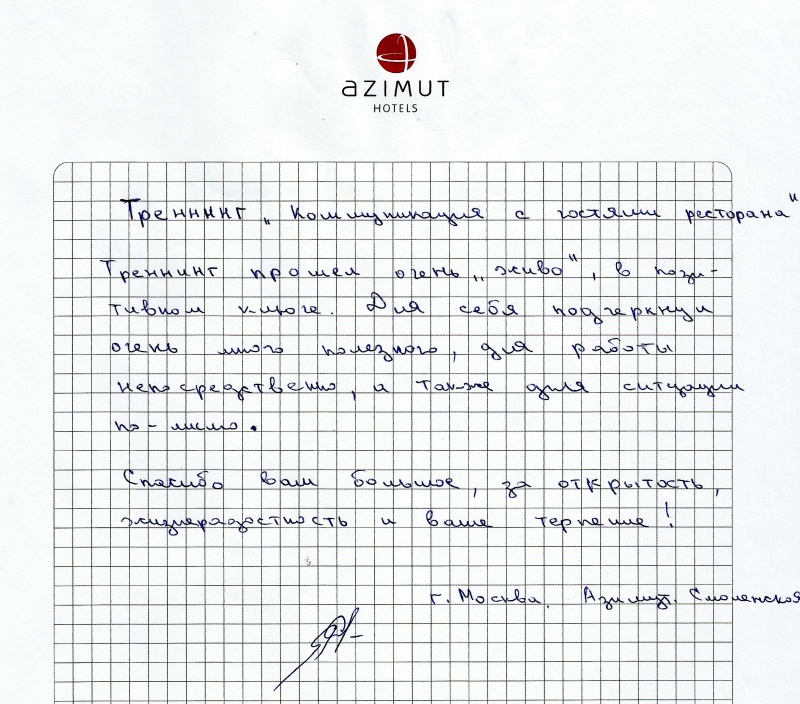 AZIMUT
HOTELS
Треннинг „Коммуникация с гостями ресторана"
Треннинг прошел очень „живо", в пози-
тивном ключе. Для себя подчеркнул
очень много полезного, для работы
непосредственно, а также для ситуации
по-мимо.
Спасибо вам большое, за открытость,
жизнерадостность и ваше терпение!
г. Москва. Азимут. Смоленская